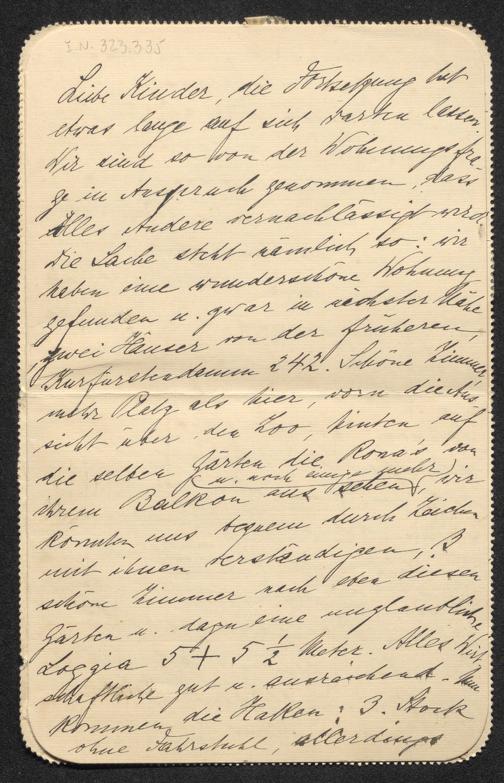 I.N. 323.335
Liebe Kinder, die Fortsetzung hat
etwas lange auf sich warten lassen.
Wir sind so von der Wohnungsfra-
ge in Anspruch genommen, dass
alles Andere vernachlässigt wird.
Die Sache steht nämlich so: wir
haben eine wunderschöne Wohnung
gefunden u. zwar in nächster Nähe
zwei Häuser von der früheren,
Kurfürstendamm 242. Schöne Zimmer,
mehr Platz als hier, vorn die Aus-
sicht über den Zoo, hinten auf
die selben Gärten die Rona's von
(u. noch einige mehr)
ihrem Balkon aus sehen, wir
könnten uns bequem durch Zeichen
mit ihnen verständigen, 3
schöne Zimmer nach eben diesen
Gärten u. dazu eine unglaubliche
Loggia 5 + 5 1/2 Meter. Alles Wirt-
schaftliche gut u. ausreichend. Nun
kommen die Haken: 3. Stock
ohne Fahrstuhl, allerdings